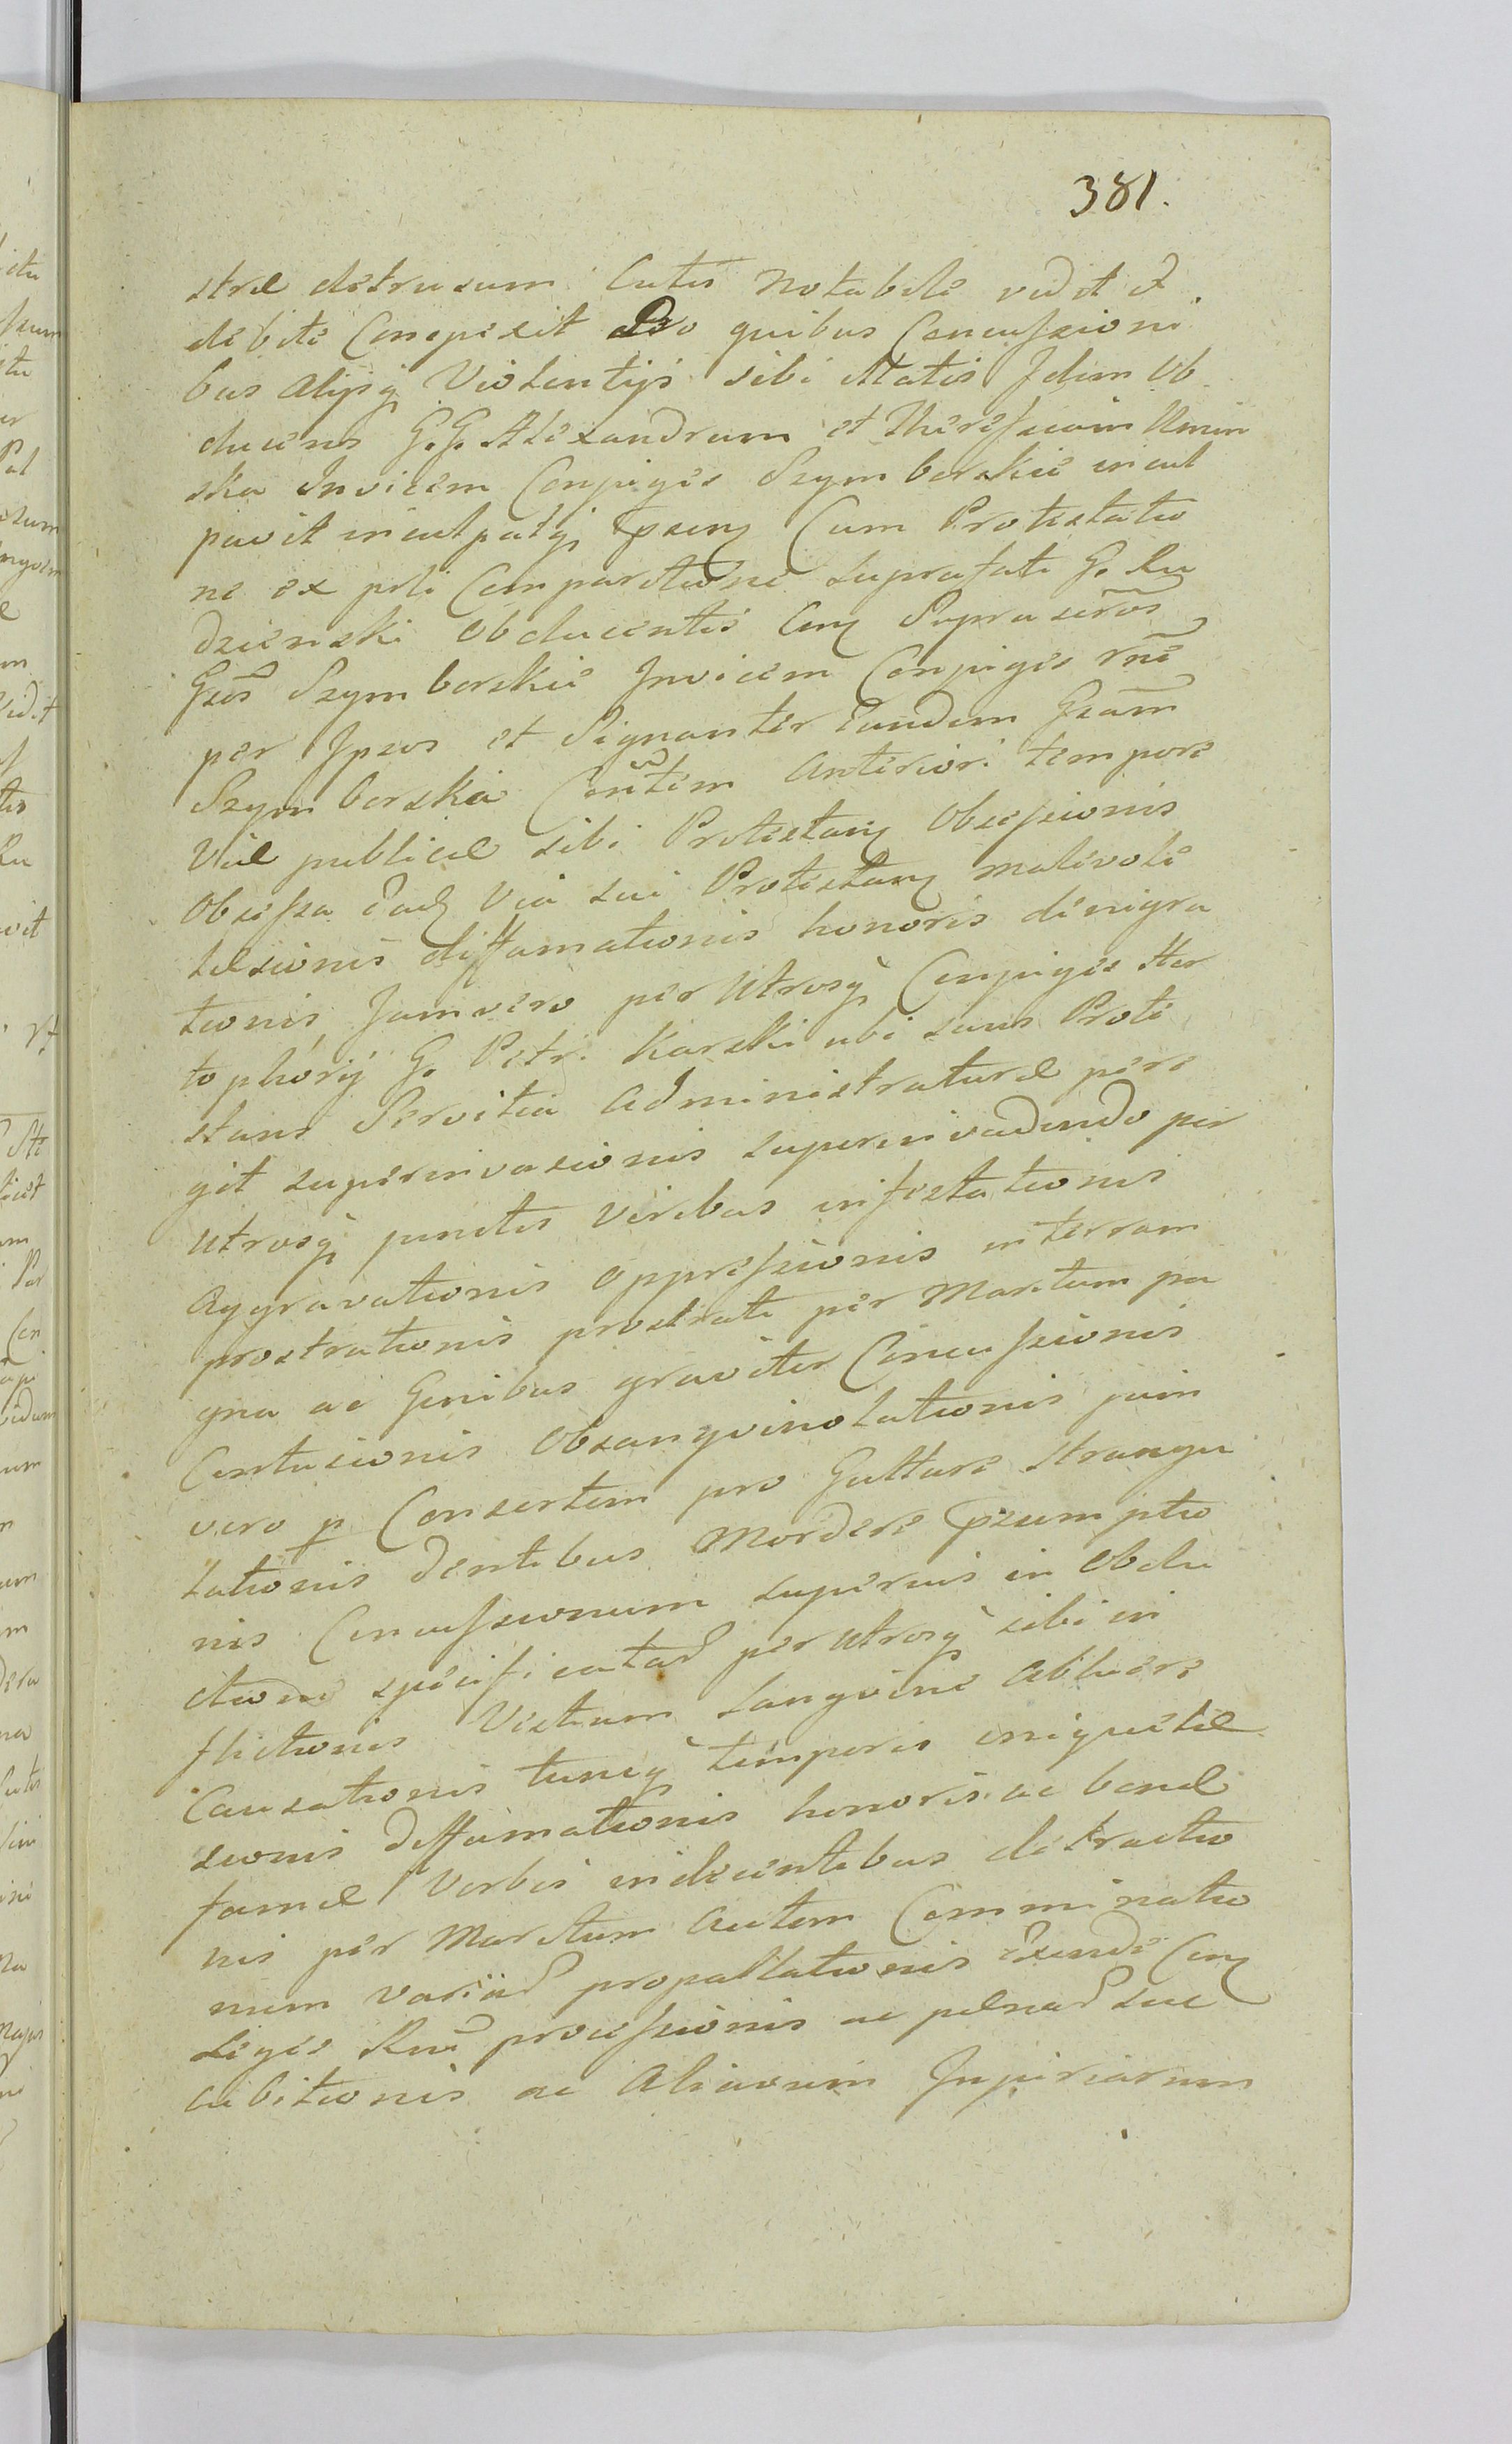 381.
stræ detrusum Cutis notabile vidit et
debite Conspexit Pro quibus Concussioni
bus alijsq Violentijs sibi illatis Idem Ob
ducens G.G. Alexandrum et Theressiam Umin
ska Invicem Conjuges Szymborskie incul
pavit inculpatq psenq Cum Protestatio
ne ex prti Comparitione suprafati G. Ru
dzienski Obducentis Cong Supra scros
Gsos Szymborskie Invicem Conjuges rne
per Ipsos et Signanter Eandem Gsam
Szymborska Contem Anteriori tempore
Viæ publicæ sibi Protestanq Obsessionis
Obsessa Eadq Via sui Protestanq malevole
læsionis diffamationis honoris denigra
tionis Jam vero per Utrosq Conjuges Her
tophorij G. Petri Karski ubi suus Prote
stans Servitia Administraturæ pere
git superinvasionis superinvadendo per
utrosq junctis viribus infestationis
Aggravationis oppressionis in terram
prostrationis prostrati per Maritum pu
gna ac Genibus graviter Concussionis
Contusionis Obsangvinolationis jam
vero p Consortem pro Gutture strangu
lationis dentibus Mordere psumptio
nis Concussionum superius in Obdu
ctione specificatar per utrosq sibi in
flictionis Vestium Sangvine abluere
Causationis tuncq temporis iniquæ læ
sionis deffamationis honoris ac bonæ
famæ Verbis indecentibus detractio
nis per Maritum autem Comminatio
num variar propallationis Exinde Conq
Leges Rni processionis ac pænar suc
cubitionis ac Aliarum Injuriarum